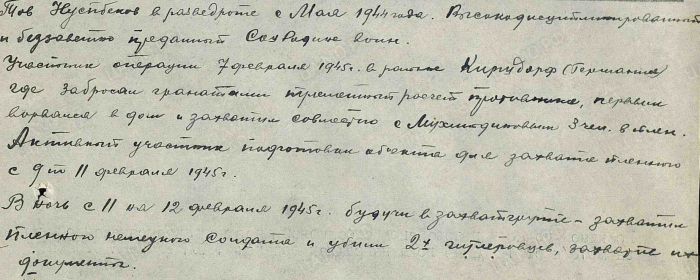 Тов Нуспбеков в разведроте с Мая 1944 года. Высокодисциплинированный
и беззаветно преданный Соц Родине воин.
Участник операции 7 февраля 1945г. в районе Кирцдорф (Германия)
где забросал гранатами пулеметный расчет противника, первым
ворвался в дом и захватил совместно с 3 чел. в плен.
Активный участник подготовки объекта для захвата пленного
с 9 по 11 февраля 1945г.
В ночь с 11 на 12 февраля 1945г. будучи в захватгруппе - захватил
пленного немецкого солдата и убил 2х гитлеровцев, захватив их
документы.